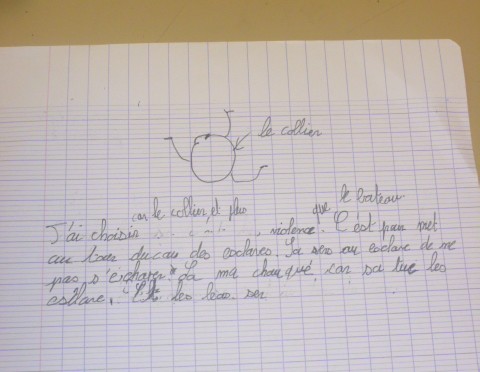 le collier
car le collier et plus que le bateau
J'ai choisir violence. C'est pour met
au tour du cou des esclaves. Sa sers au esclave de me
pas s'echaper. Sa ma choqué car sa tue les
esclave. les